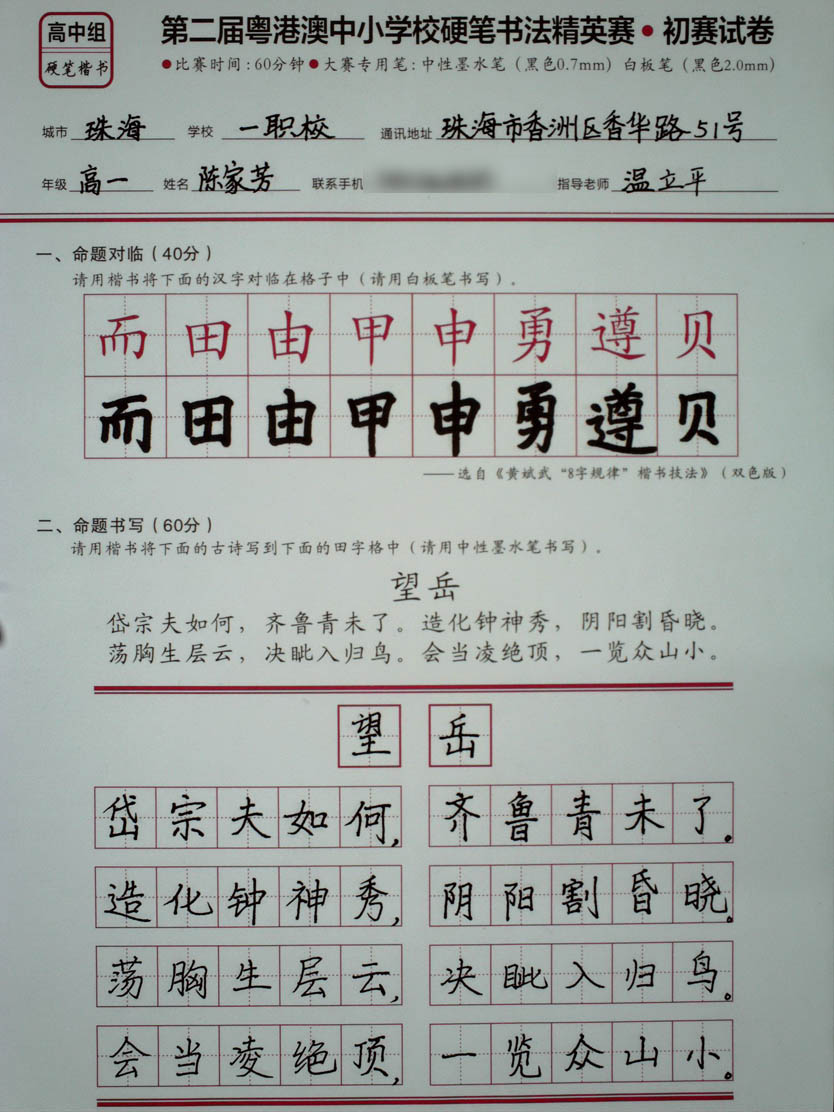 高中组
硬笔楷书
第二届粤港澳中小学校硬笔书法精英赛•初赛试卷
●比赛时间:60分钟●大赛专用笔:中性墨水笔(黑色0.7mm) 白板笔(黑色2.0mm)
城市 珠海 学校 一职校 通讯地址 珠海市香洲区香华路-51号
年级 高一 姓名 陈家芳 联系手机 指导老师 温立平
一、命题对临(40分)
请用楷书将下面的汉字对临在格子中(请用白板笔书写)。
而田由甲申勇遵贝
而田由甲申勇遵贝
——选自《黄斌武“8字规律”楷书技法》(双色版)
二、命题书写(60分)
请用楷书将下面的古诗写到下面的田字格中(请用中性墨水笔书写)。
望岳
岱宗夫如何，齐鲁青未了。造化钟神秀，阴阳割昏晓。
荡胸生层云，决眦入归鸟。会当凌绝顶，一览众山小。
望岳
岱宗夫如何，齐鲁青未了。
造化钟神秀，阴阳割昏晓。
荡胸生层云，决眦入归鸟。
会当凌绝顶，一览众山小。